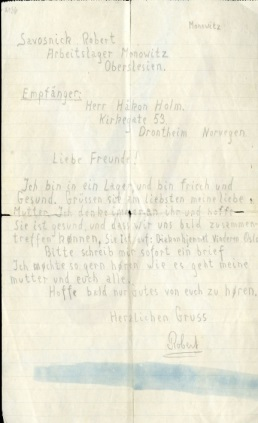 Monowitz
Savosnick Robert
Arbeitslager Monowitz
Oberslesien.
Empfänger:
Herr Håkon Holm.
Kirkegate 59
Drontheim Norvegen
Liebe Freunde!
Ich bin in ein Lager und bin frisch und
Gesund. Grüssen sie am liebsten meine liebe
Mutter. Ich denke immer an ihr und hoffe
Sie ist gesund, und dass wir uns bald zusammen
treffen können. Sie ist auf: Diakonhjemmet Vinderen Oslo
Bitte schreib mir sofort ein brief
Ich møchte so gern høren wie es geht meine
mutter und euch alle.
Hoffe bald nur gutes von euch zu høren.
Herzlichen Gruss
Robert